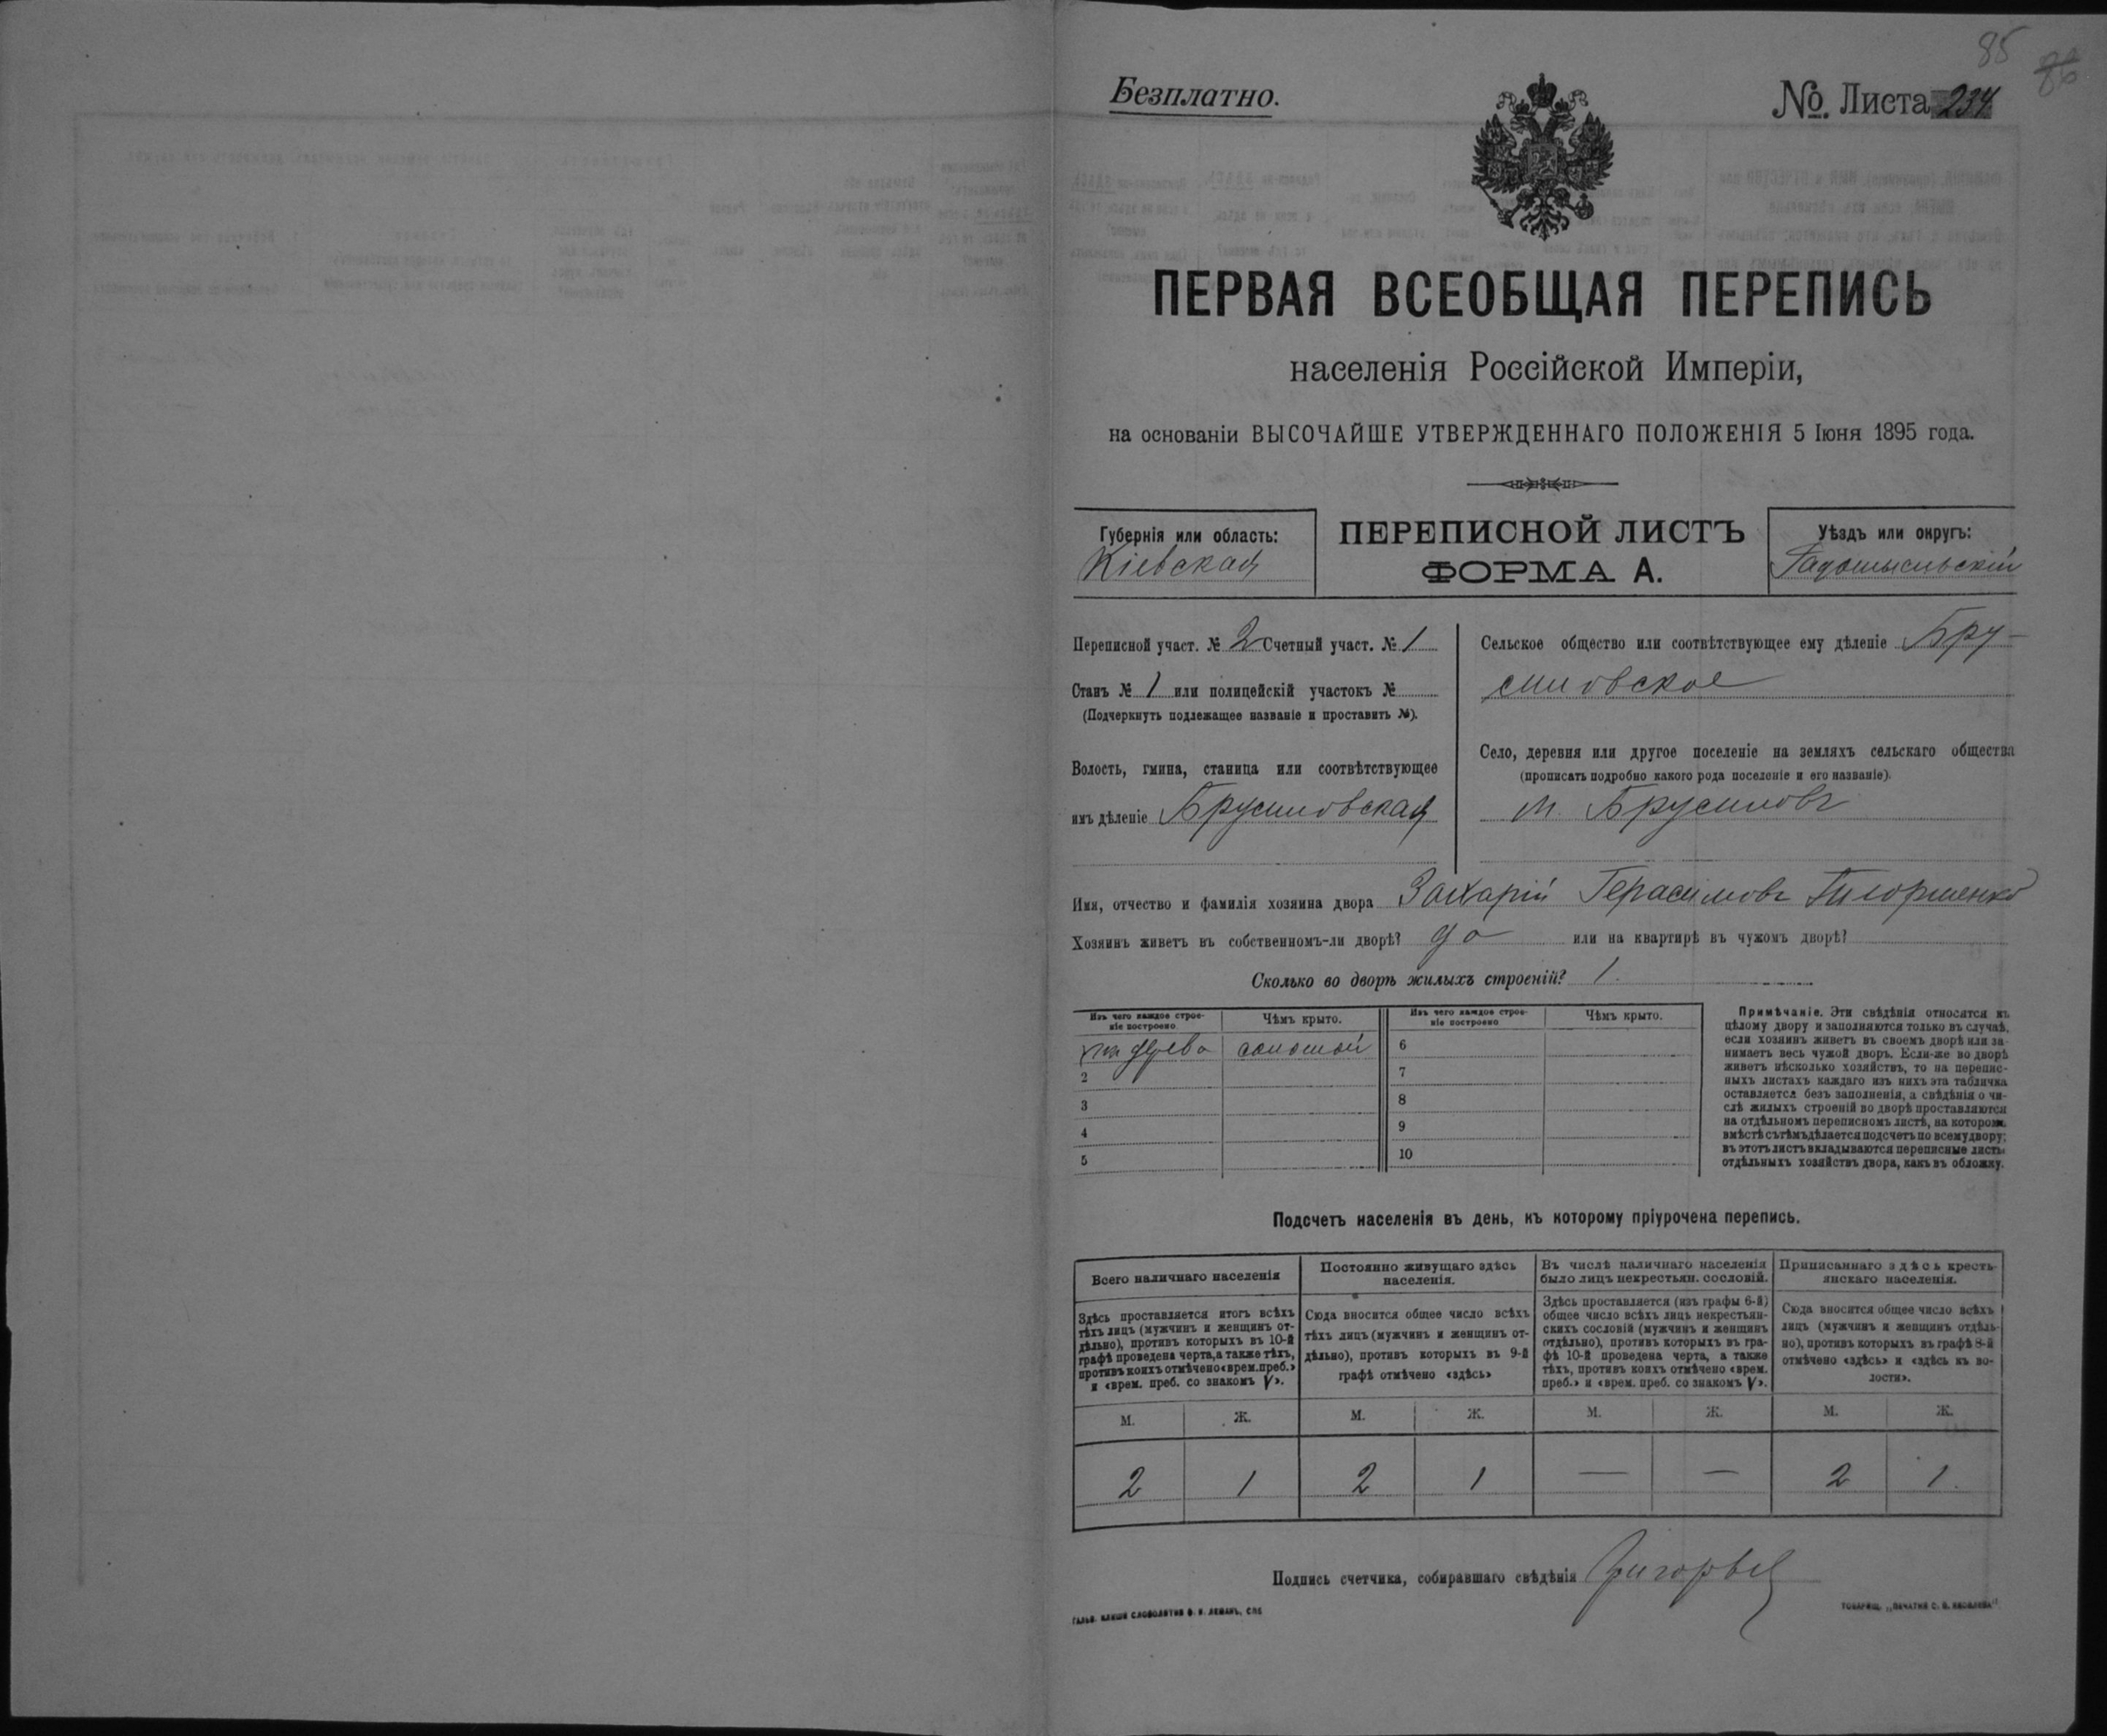 85
86
Безплатно.
№. Листа 234
ПЕРВАЯ ВСЕОБЩАЯ ПЕРЕПИСЬ
населенія Россійской Имперіи,
на основаніи ВЫСОЧАЙШЕ УТВЕРЖДЕННАГО ПОЛОЖЕНІЯ 5 Іюня 1895 года.
Губернія или область:
Кіевская
ПЕРЕПИСНОЙ ЛИСТЪ
ФОРМА А.
Уѣздъ или округъ:
Радомысльскій
Переписной участ. № 2 Счетный участ. № 1
Станъ № 1 или полицейскій участокъ №
(Подчеркнуть подлежащее названіе и проставить №).
Волость, гмина, станица или соотвѣтствующее
имъ дѣленіе Брусиловская
Сельское общество или соотвѣтствующее ему дѣленіе Бру-
силовское
Село, деревня или другое поселеніе на земляхъ сельскаго общества
(прописать подробно какого рода поселеніе и его названіе).
м. Брусиловъ
Имя, отчество и фамилія хозяина двора Захарій Герасимовъ
Хозяинъ живетъ въ собственномъ-ли дворѣ? да или на квартирѣ въ чужомъ дворѣ?
Сколько во дворѣ жилыхъ строеній? 1.
Изъ чего каждое строе-
ніе построено
Чѣмъ крыто.
Изъ чего каждое строе-
ніе построено
Чѣмъ крыто.
изъ дерева соломой 6
2 7
3 8
4 9
5 10
Примѣчаніе. Эти свѣдѣнія относятся къ
цѣлому двору и заполняются только въ случаѣ,
если хозяинъ живетъ въ своемъ дворѣ или за-
нимаетъ весь чужой дворъ. Если-же во дворѣ
живетъ нѣсколько хозяйствъ, то на перепис-
ныхъ листахъ каждаго изъ нихъ эта табличка
оставляется безъ заполненія, а свѣдѣнія о чи-
слѣ жилыхъ строеній во дворѣ проставляются
на отдѣльномъ переписномъ листѣ, на которомъ
вмѣстѣ съ тѣмъ дѣлается подсчетъ по всему двору;
въ этотъ листъ вкладываются переписные листы
отдѣльныхъ хозяйствъ двора, какъ въ обложку.
Подсчетъ населенія въ день, къ которому пріурочена перепись.
Всего наличнаго населенія
Здѣсь проставляется итогъ всѣхъ
тѣхъ лицъ (мужчинъ и женщинъ от-
дѣльно), противъ которыхъ въ 10-й
графѣ проведена черта, а также тѣхъ,
противъ коихъ отмѣчено «врем. преб.»
и «врем. преб. со знакомъ V».
Постоянно живущаго здѣсь
населенія.
Сюда вносится общее число всѣхъ
тѣхъ лицъ (мужчинъ и женщинъ от-
дѣльно), противъ которыхъ въ 9-й
графѣ отмѣчено «здѣсь»
Въ числѣ наличнаго населенія
было лицъ некрестьян. сословій.
Здѣсь проставляется (изъ графы 6-й)
общее число всѣхъ лицъ некрестьян-
скихъ сословій (мужчинъ и женщинъ
отдѣльно), противъ которыхъ въ гра-
фѣ 10-й проведена черта, а также
тѣхъ, противъ коихъ отмѣчено «врем.
преб.» и «врем. преб. со знакомъ V».
Приписаннаго здѣсь кресть-
янскаго населенія.
Сюда вносится общее число всѣхъ
лицъ (мужчинъ и женщинъ отдѣль-
но), противъ которыхъ въ графѣ 8-й
отмѣчено «здѣсь» и «здѣсь къ во-
лости».
М. Ж. М. Ж. М. Ж. М. Ж.
2 1 2 1 — — 2 1.
Подпись счетчика, собиравшаго свѣдѣнія
ГАЛЬВ. КЛИШЕ СЛОВОЛИТНИ О. И. ЛЕМАНЪ, СПБ
ТОВАРИЩ. „ПЕЧАТНЯ С. П. ЯКОВЛЕВА"